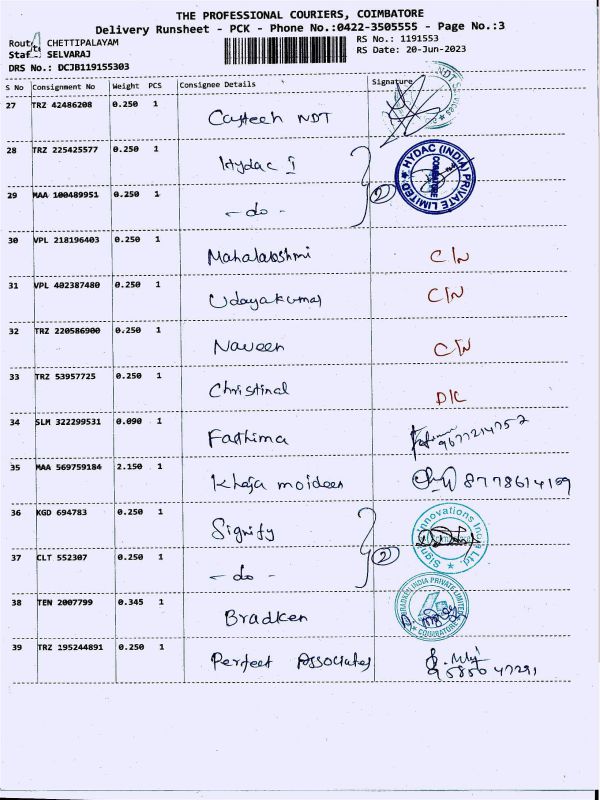 THE PROFESSIONAL COURIERS, COIMBATORE
Delivery Runsheet - PCK - Phone No.:0422-3505555 - Page No.:3
CHETTIPALAYAM RS No.: 1191553
SELVARAJ RS Date: 20-Jun-2023
DRS No.: DCJB119155303
S No Consignment No Weight PCS Consignee Details Signature
27 TRZ 42486208 0.250 1 NDT
28 TRZ 225425577 0.250 1 Hydac I HYDAC (INDIA) PRIVATE LIMITED COIMBATORE
29 MAA 100489951 0.250 1 - do - 2
30 VPL 218196403 0.250 1 Mahalakshmi C/N
31 VPL 402387480 0.250 1 Udayakumar C/N
32 TRZ 220586900 0.250 1 Naveen C/N
33 TRZ 53957725 0.250 1 Christinal D/C
34 SLM 322299531 0.090 1 Fathima
35 MAA 569759184 2.150 1 Khaja moideen
36 KGD 694783 0.250 1 Signify Signify Innovations India Ltd.
37 CLT 552307 0.250 1 - do - 2
38 TEN 2007799 0.345 1 Bradken BRADKEN INDIA PRIVATE LIMITED COIMBATORE
39 TRZ 195244891 0.250 1 Perfect Associates